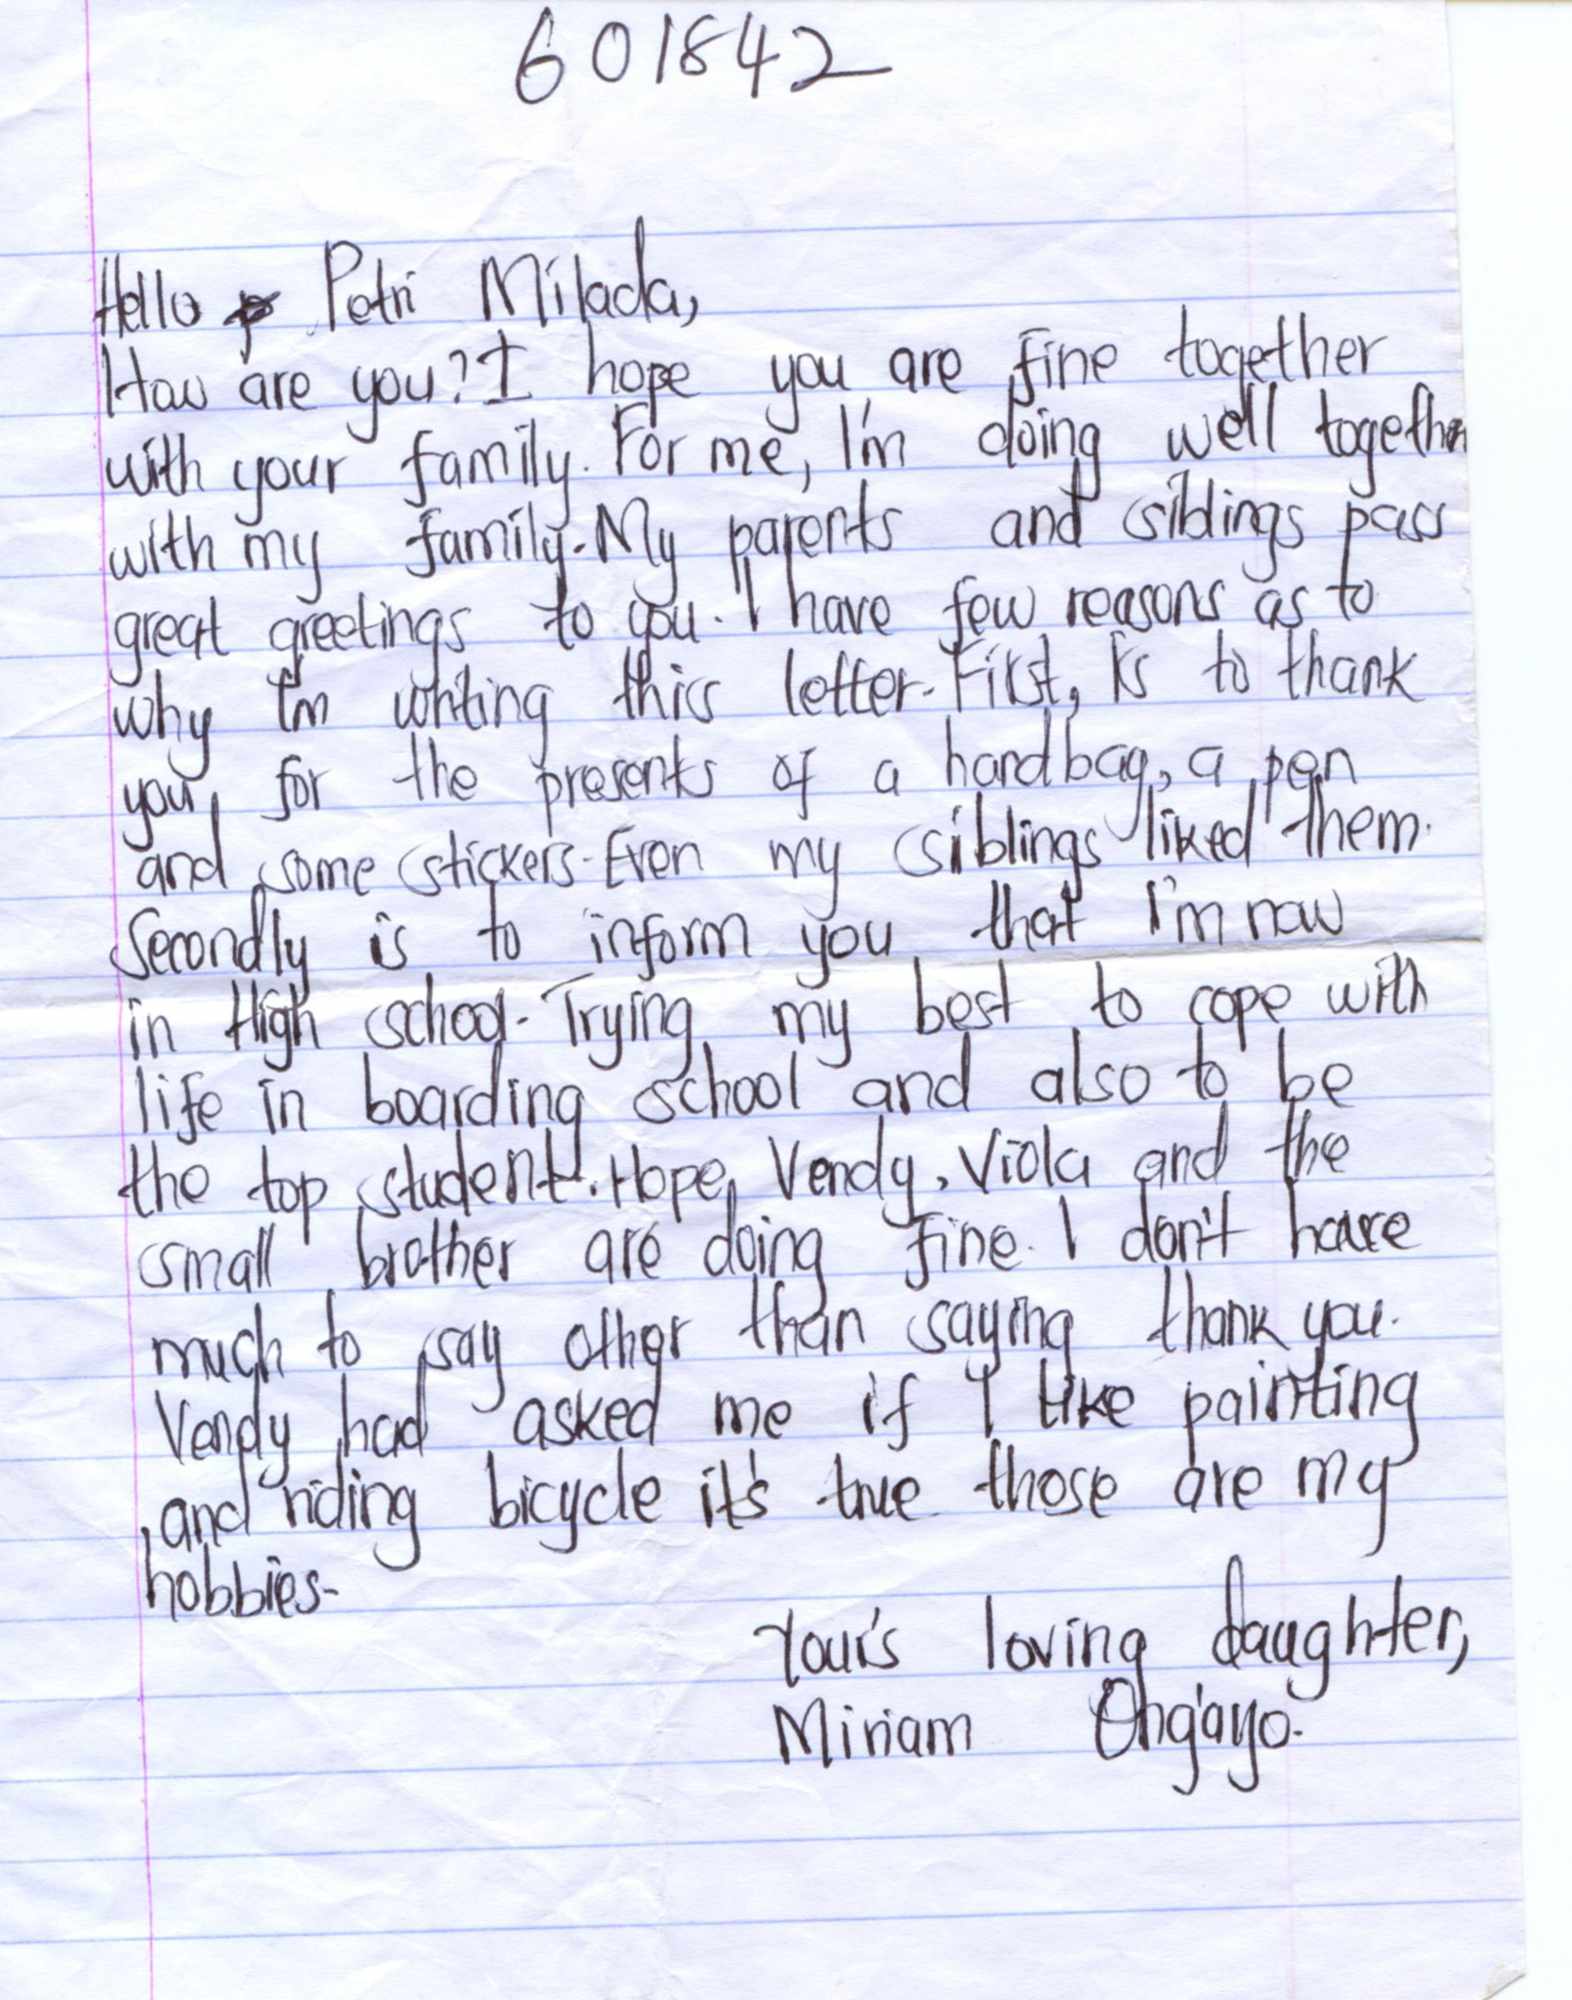 601842
Hello Petri Milada,
How are you? I hope you are fine together
with your family. For me, I'm doing well together
with my family. My parents and siblings pass
great greetings to you. I have few reasons as to
why I'm writing this letter. First, is to thank
you for the presents of a handbag, a pen
and some stickers. Even my siblings liked them.
Secondly is to inform you that I'm now
in High school. Trying my best to cope with
life in boarding school and also to be
the top student. Hope Vendy, Viola and the
small brother are doing fine. I don't have
much to say other than saying thank you.
Vendy had asked me if I like painting
and riding bicycle it's true those are my
hobbies.
Your's loving daughter,
Miriam Ong'ayo.